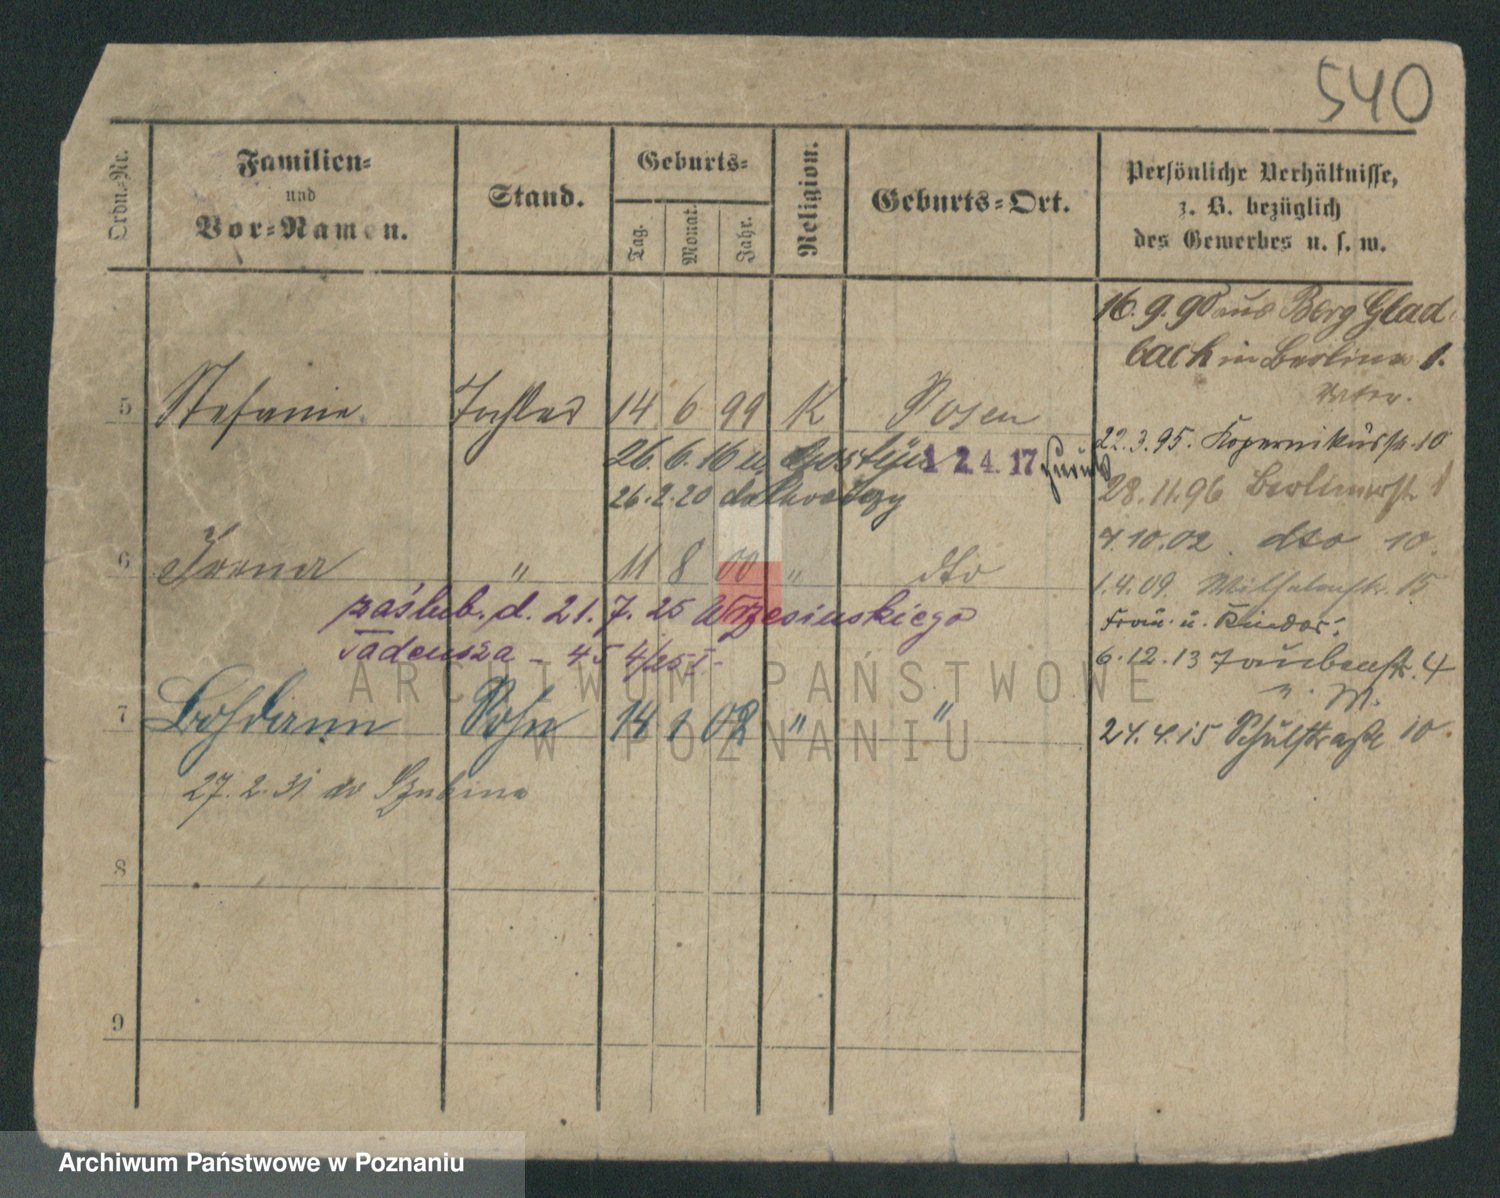 540
Ordn.-Nr.
Familien-
und
Vor-Namen.
Stand.
Geburts-
Tag.
Monat.
Jahr.
Religion.
Geburts-Ort.
Persönliche Verhältnisse,
z. B. bezüglich
des Gewerbes u. s. w.
16.9.90 aus Berg Glad-
bach in Berliner 1.
5 Stefanie Tochter 14 6 99 K Posen
26.6.16 n. Gostyn 1 2.4.17 zurück
26.2.20
22.3.95. Kopernikusstr. 10
28.11.96 Berlinerstr. 1
7.10.02. dto 10.
6 Irena " 11 8 00 " dto
1.4.09. 15
zaślub. d. 21.7.25 Wrzesińskiego
Tadeusza - 45 4/25 I-
Frau u. Kinder:
6.12.13 Taubenstr. 4
" M.
7 Bohdann Sohn 14 1 02 " "
24.4.15 Schulstraße 10.
27.2.31 do Szubina
8
9
ARCHIWUM PAŃSTWOWE
W POZNANIU
Archiwum Państwowe w Poznaniu